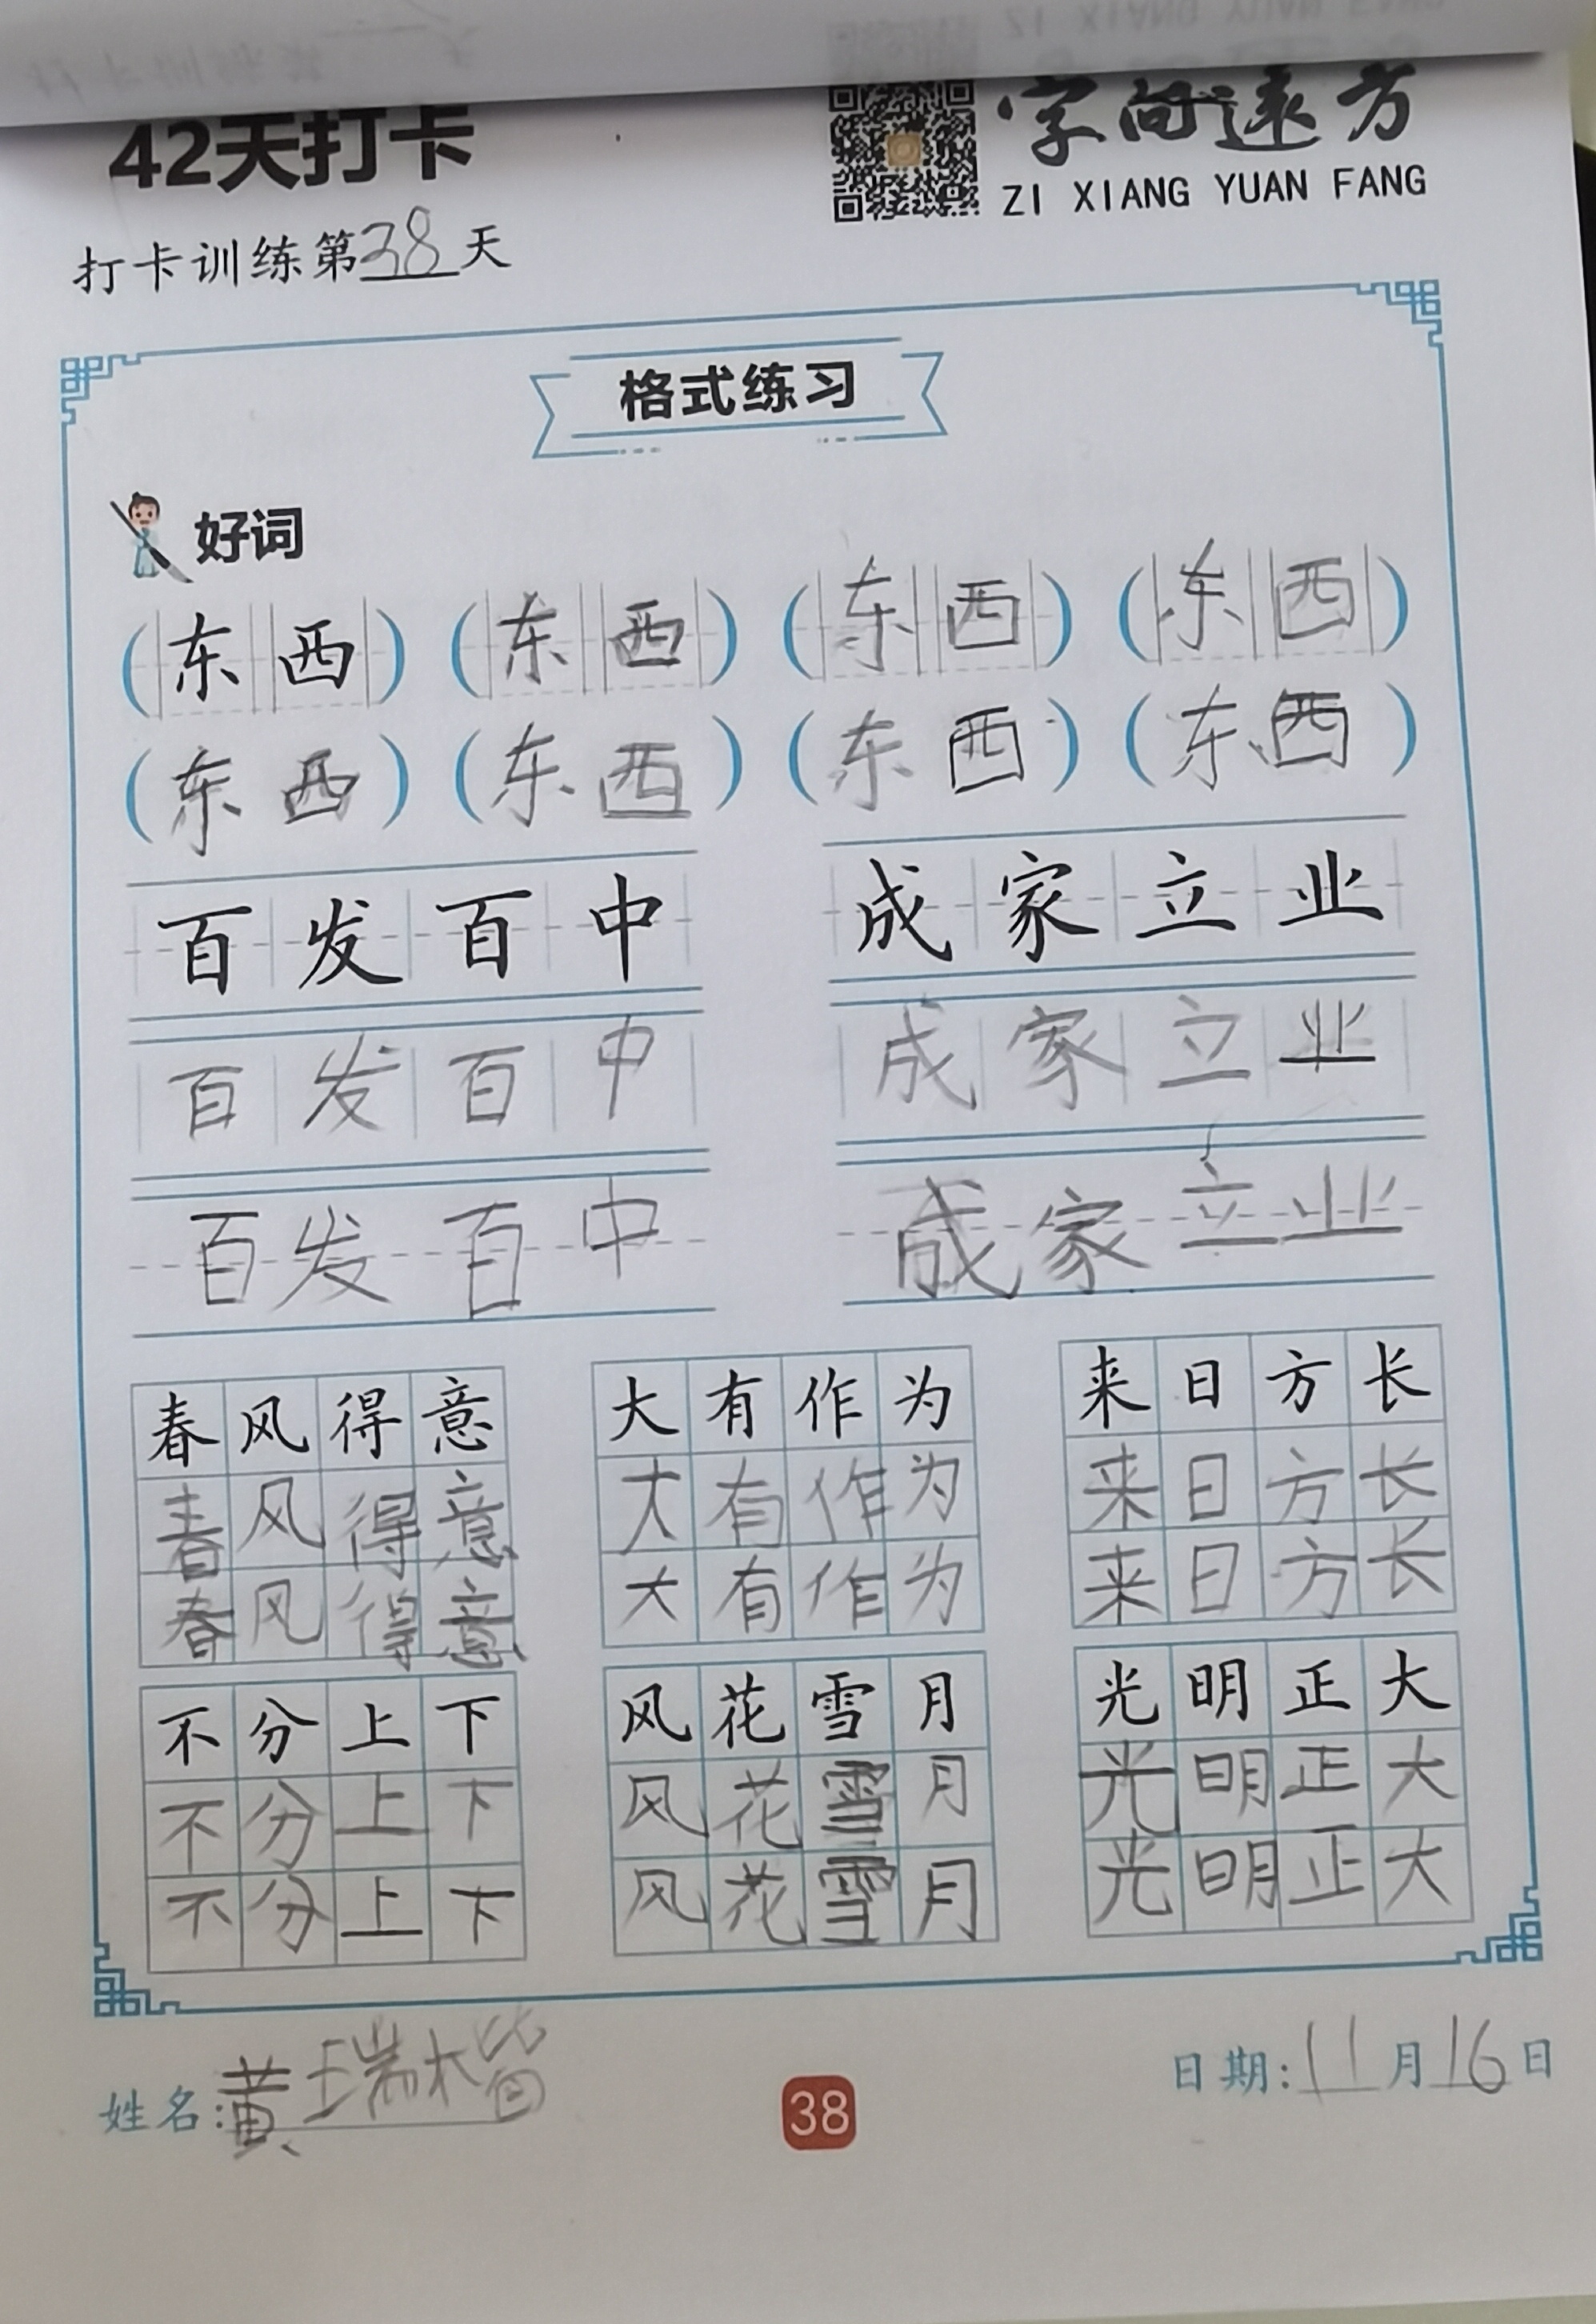 42天打卡
字向远方
ZI XIANG YUAN FANG
打卡训练第38天
格式练习
好词
(东西) (东西) (东西) (东西)
(东西) (东西) (东西) (东西)
百发百中 成家立业
百发百中 成家立业
百发百中 成家立业
春风得意 大有作为 来日方长
春风得意 大有作为 来日方长
春风得意 大有作为 来日方长
不分上下 风花雪月 光明正大
不分上下 风花雪月 光明正大
不分上下 风花雪月 光明正大
姓名:黄瑞楷 日期:11月16日
38